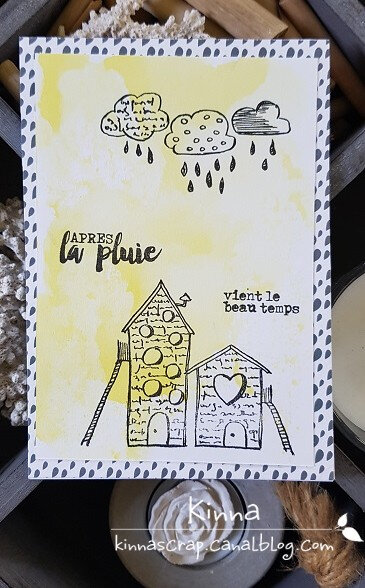 APRES
la pluie
vient le
beau temps
Kinna
kinnascrap.canalblog.com